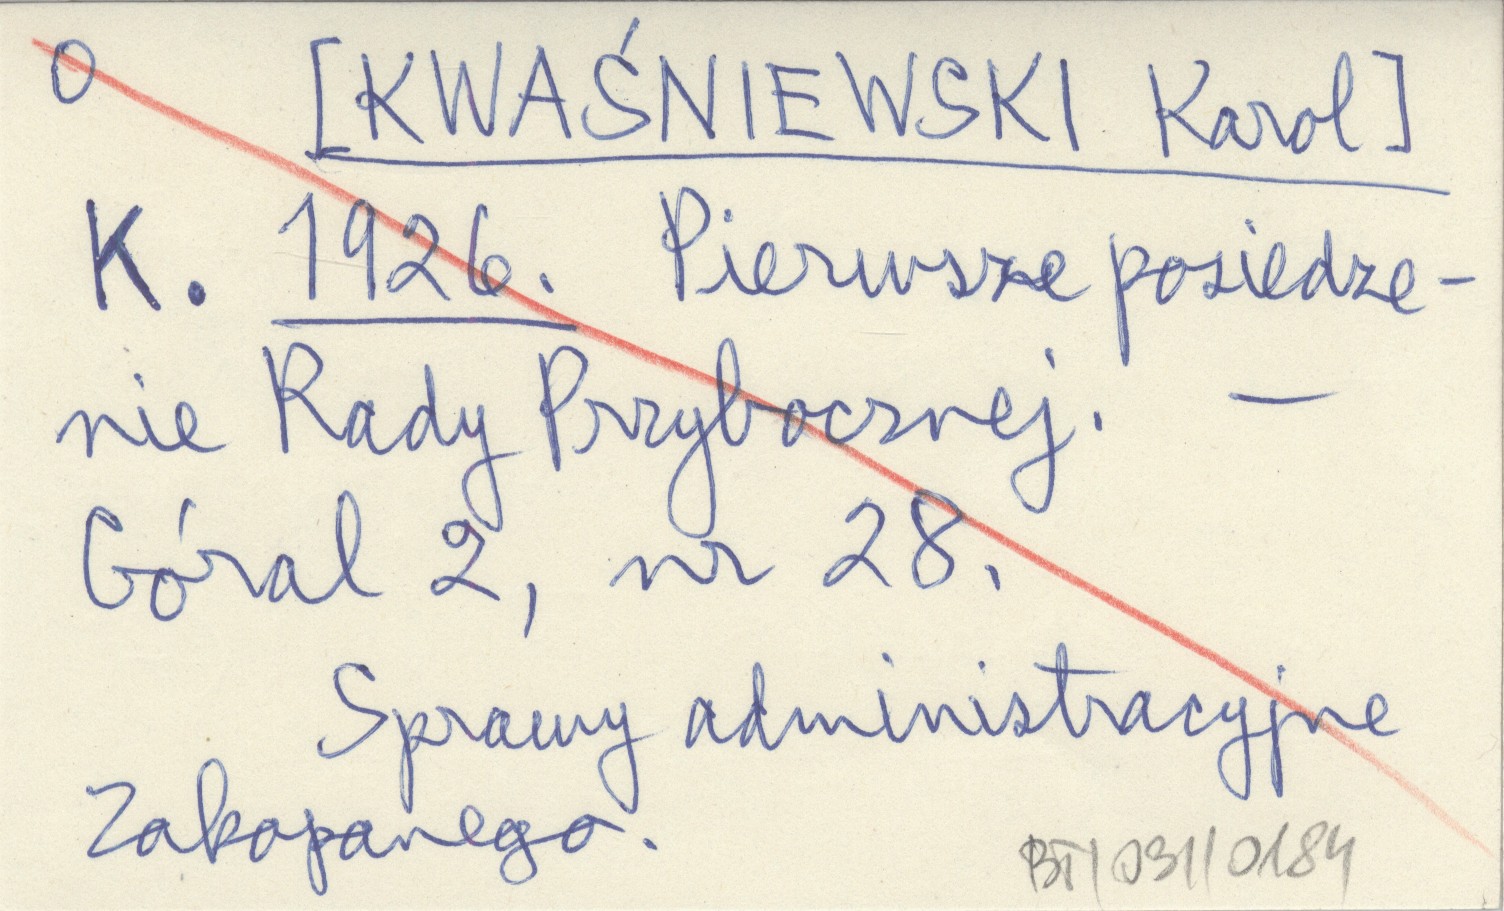 O [KWAŚNIEWSKI Karol]
K. 1926. Pierwsze posiedze-
nie Rady Przybocznej. —
Góral 2, nr 28.
Sprawy administracyjne
Zakopanego.
BT/031/0184